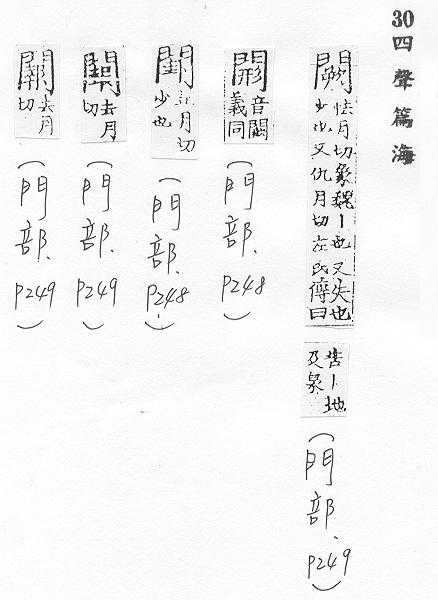 30 四聲篇海
闕 怯月切象魏丨也又失也
少也又仇月切左氏傳曰
若丨地
及泉
(門部、P249)
音闕
義同
(門部、P248)
月切
少也
(門部、P248)
去月
切
(門部、P249)
去月
切
(門部、P249)